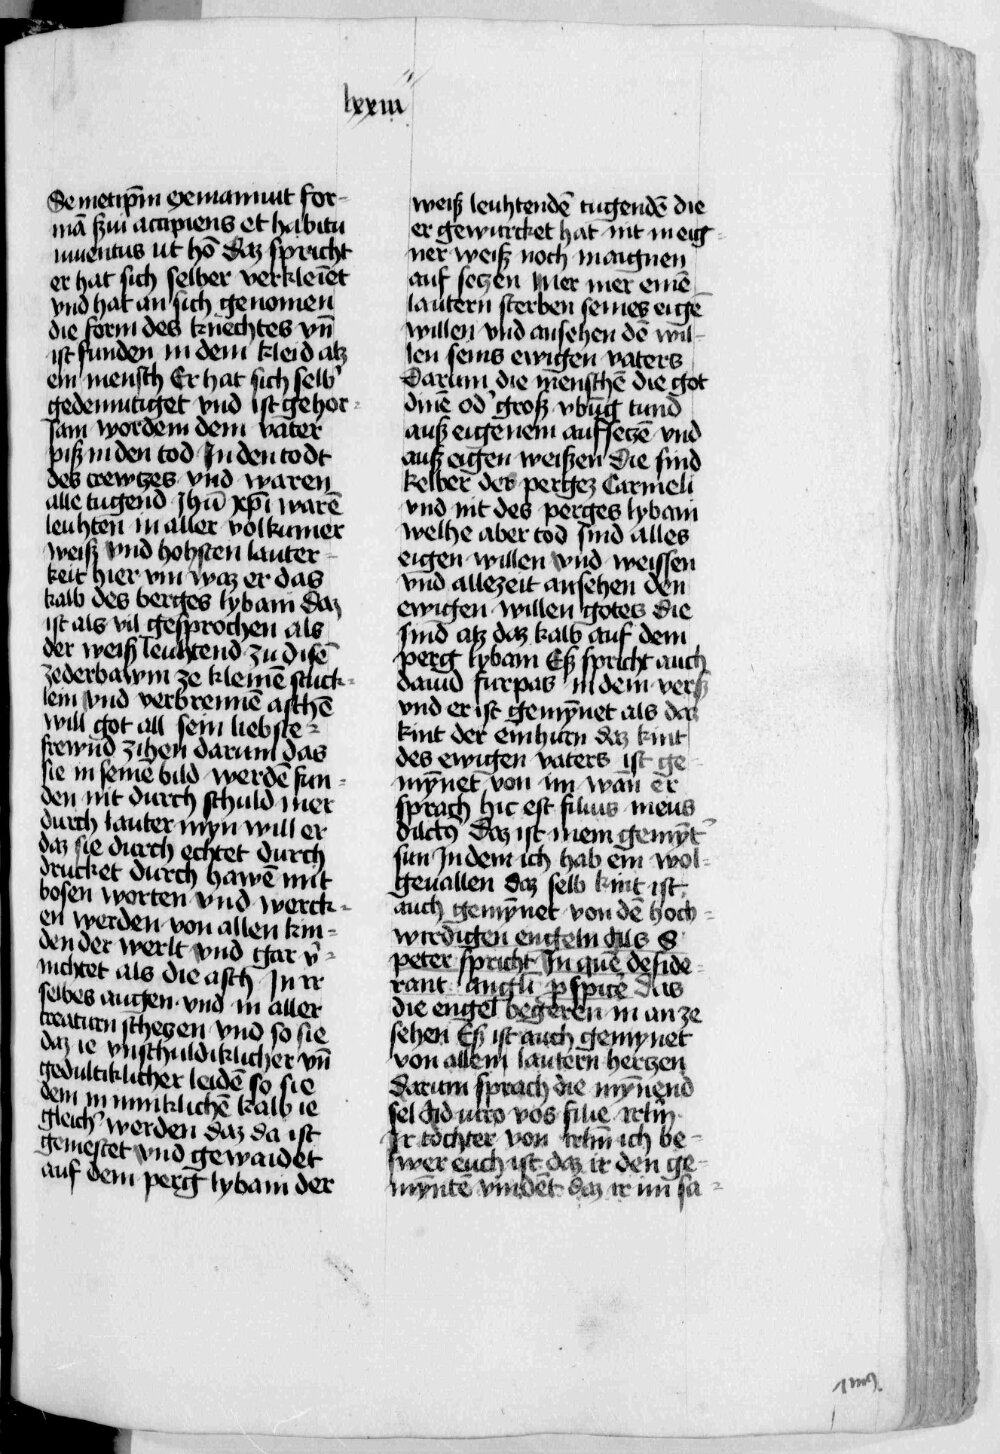 lxxiii
Semetip̄m exinanniut for-
mā s̄ui accipiens et habitu
inuentus ut hō Daz spricht
er hat sich selber verkleīet
vnd hat an sich genomen
die form des knechtes vn̄
ist funden in dem kleid alz
ein mensch Er hat sich selb'
gedemutiget vnd ist gehor-
sam wordem dem vater
piß in den tod In den todt
des crewtzes vnd waren
alle tugend Jhū xp̄i warē
leuhten in aller volkumer
weiß vnd hohsten lauter-
keit hier vm waz er das
kalb des berges lybani daz
ist als vil gesprochen als
der weiß leuhtend zu disē
zederbawm ze kleinē stuck-
lein vnd verbrennē aschē
will got all sein liebste-
frewnd zihen darum das
sie in seinē bild werdē fun-
den nit durch schuld mer
durch lauter myn will er
daz sie durch echtet durch
drucket durch hawē mit
bosen worten vnd werck-
en werden von allen kin-
den der werlt vnd gar v̄-
nichtet als die asch In ir
selbes augen vnd in aller
creaturn schetzen vnd so sie
daz ie vnschuldiklicher vn̄
gedultiklicher leidē so sie
dem minniklichē kalb ie
gleich' werden daz da ist
gemestet vnd gewaidet
auf dem perg lybani der
weiß leuhtendē tugendē die
er gewurcket hat nit in eig-
ner weiß noch in aignen
auf setzen mer mer einē
lautern sterben seines eigē
willen vnd ansehen dē wil-
len seins ewigen vaters
Darum die menschē die got
dinē od' groß vbūg tund
auß eigenem aufsetzē vnd
auß eigen weißen die sind
kelber des pergez Carmeli
vnd nit des perges lybani
welhe aber tod sind alles
eigen willen vnd weissen
vnd allezeit ansehen den
ewigen willen gotes die
sind alz daz kalb auf dem
perg lybani Eß spricht auch
dauid furpas in dem verß
vnd er ist gemȳnet als daz
kint der einhurn daz kint
des ewigen vaters ist ge-
mȳnet von im wan̄ er
sprach hic est filius meus
dilctꝰ Daz ist mein gemȳt'
sun In dem ich hab ein wol-
geuallen daz selb kint ist
auch gemȳnet von dē hoch-
wirdigen engeln als S
peter spricht In quē deside-
rant angli p̱spicē das
die engel begeren in an ze
sehen Eß ist auch gemynet
von allem lautern hertzen
Darum sprach die mȳnend
sel Adiuro vos filie irlm̄
Ir tochter von irlm̄ ich be-
swer euch ist daz ir den ge-
mȳntē vindēt daz ir im sa-